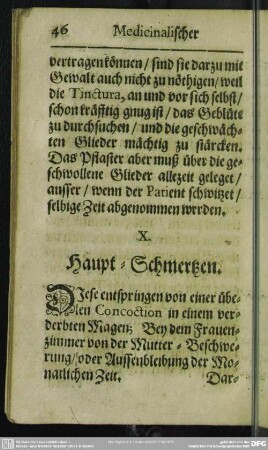 46 Medicinalischer
vertragen können / sind sie darzu mit
Gewalt auch nicht zu nöthigen / weil
die Tinctura, an und vor sich selbst /
schon kräfftig gnug ist / das Geblüte
zu durchsuchen / und die geschwäch-
ten Glieder mächtig zu stärcken.
Das Pflaster aber muß über die ge-
schwollene Glieder allezeit geleget /
ausser / wenn der Patient schwitzet /
selbige Zeit abgenommen werden.
X.
Haupt-Schmertzen.
Diese entspringen von einer übe-
len Concoction in einem ver-
derbten Magen; Bey dem Frauen-
zimmer von der Mutter-Beschwe-
rung / oder Aussenbleibung der Mo-
natlichen Zeit.
Dar-